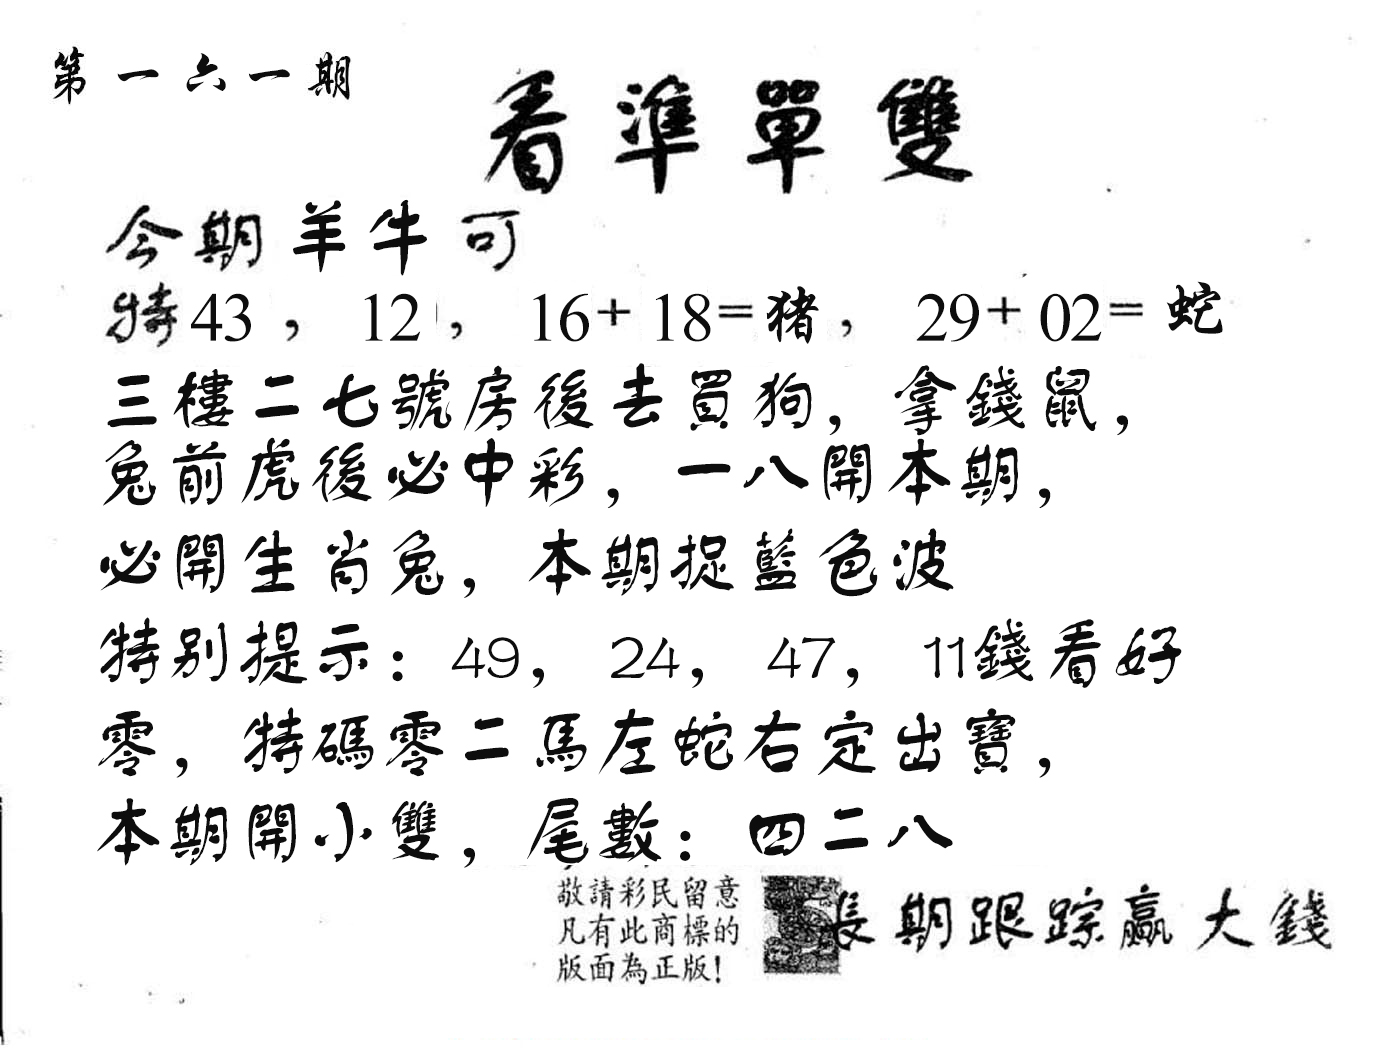 第一六一期
看準單雙
今期羊牛可
特43，12，16+18=猪，29+02=蛇
三樓二七號房後去買狗，拿錢鼠，
兔前虎後必中彩，一八開本期，
必開生肖兔，本期捉藍色波
特别提示：49，24，47，11錢看好
零，特碼零二馬左蛇右定出寶，
本期開小雙，尾數：四二八
敬請彩民留意
凡有此商標的
版面為正版！
長期跟踪贏大錢